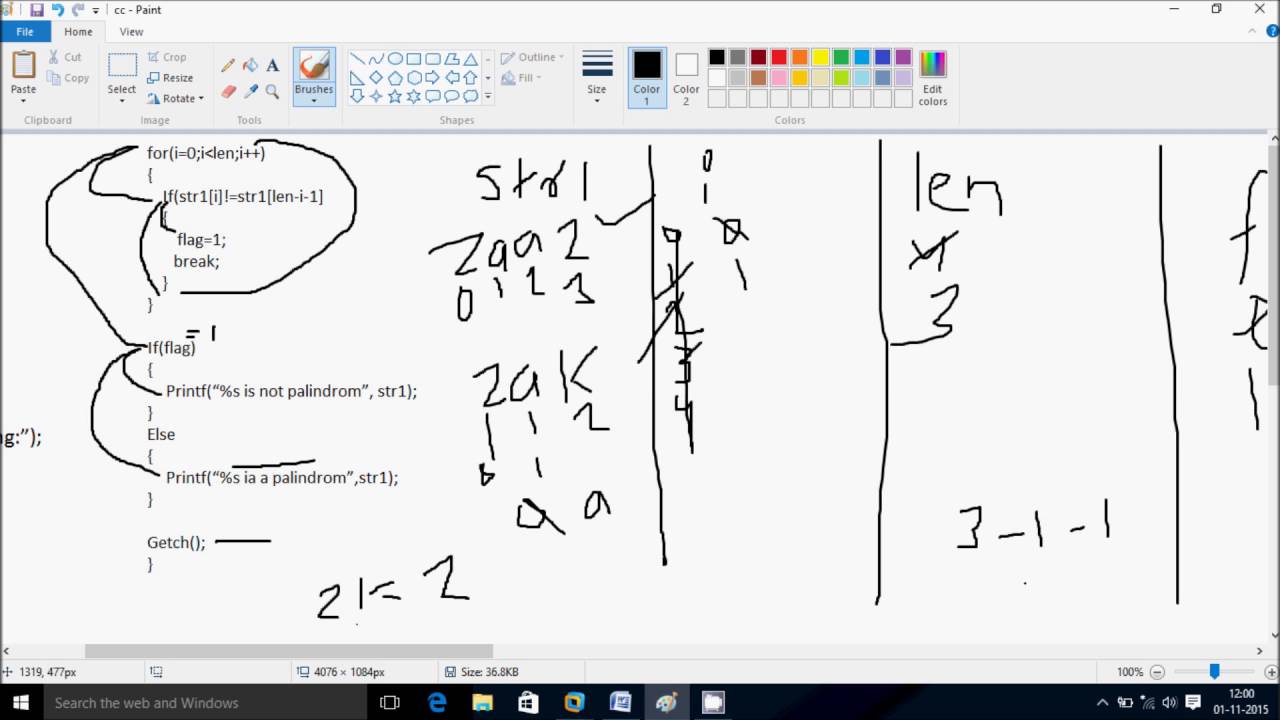 cc - Paint
File
Home
View
Paste
Cut
Copy
Clipboard
Select
Crop
Resize
Rotate
Image
A
Tools
Brushes
Outline
Fill
Shapes
Size
Color 1
Color 2
Edit colors
Colors
for(i=0;i<len;i++)
{
If(str1[i]!=str1[len-i-1]
{
flag=1;
break;
}
}
= 1
If(flag)
{
Printf("%s is not palindrom", str1);
}
Else
{
Printf("%s ia a palindrom",str1);
}
Getch();
}
ng:");
str1
zaaz
0 1 2 3
zak
1 1 2
1
a a
z != z
0
1
0
1
3
4
len
4
3
3-1-1
f
1
1319, 477px
4076 × 1084px
Size: 36.8KB
100%
Search the web and Windows
12:00
01-11-2015